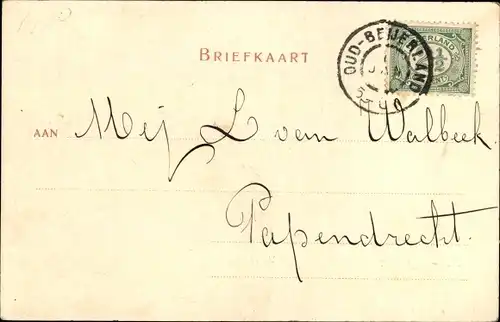 BRIEFKAART
OUD-BEIJERLAND
NEDERLAND
½
AAN Mej L van Walbeek
Papendrecht.